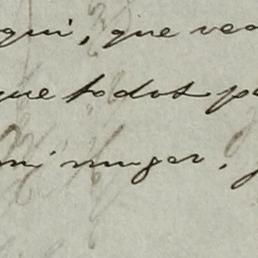 qui, que veo
que todos pa
mi muger,